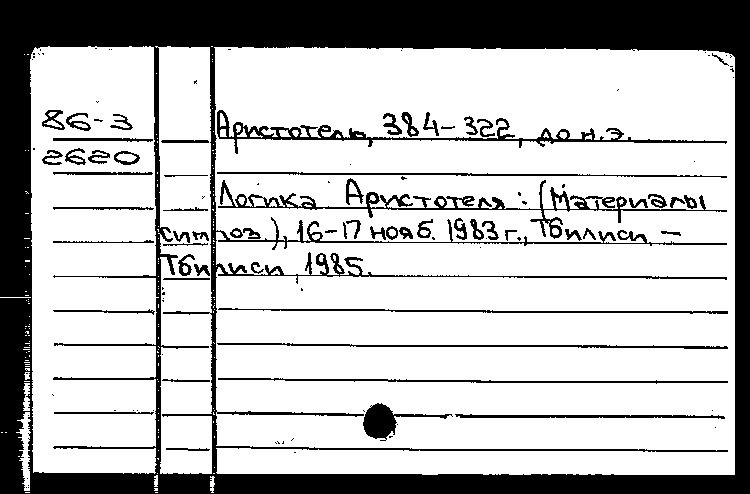 86-3
2620
Аристотель, 384-322, до н.э.
Логика Аристотеля : (Материалы
симпоз.), 16-17 нояб. 1983 г., Тбилиси. —
Тбилиси, 1985.